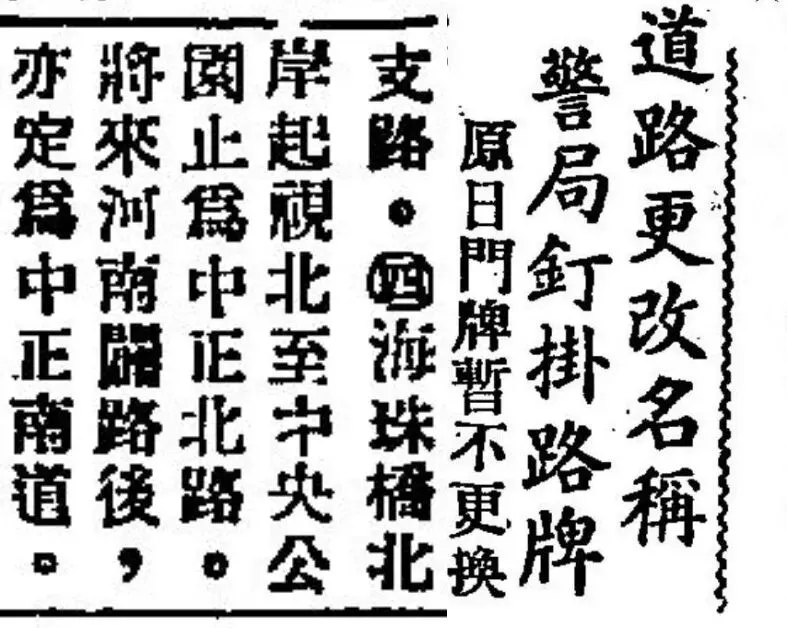 道路更改名稱
警局釘掛路牌
原日門牌暫不更換
支路。㊃海珠橋北
岸起視北至中央公
園止為中正北路。
將來河南闢路後，
亦定為中正南道。